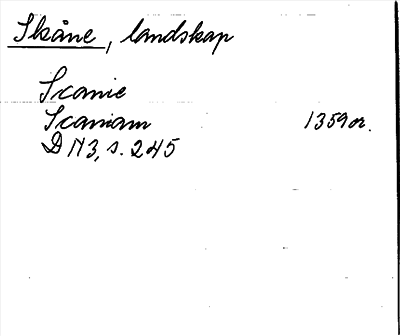 Skåne, landskap
Scanie
Scaniam 1359 or.
D N 3, s. 245